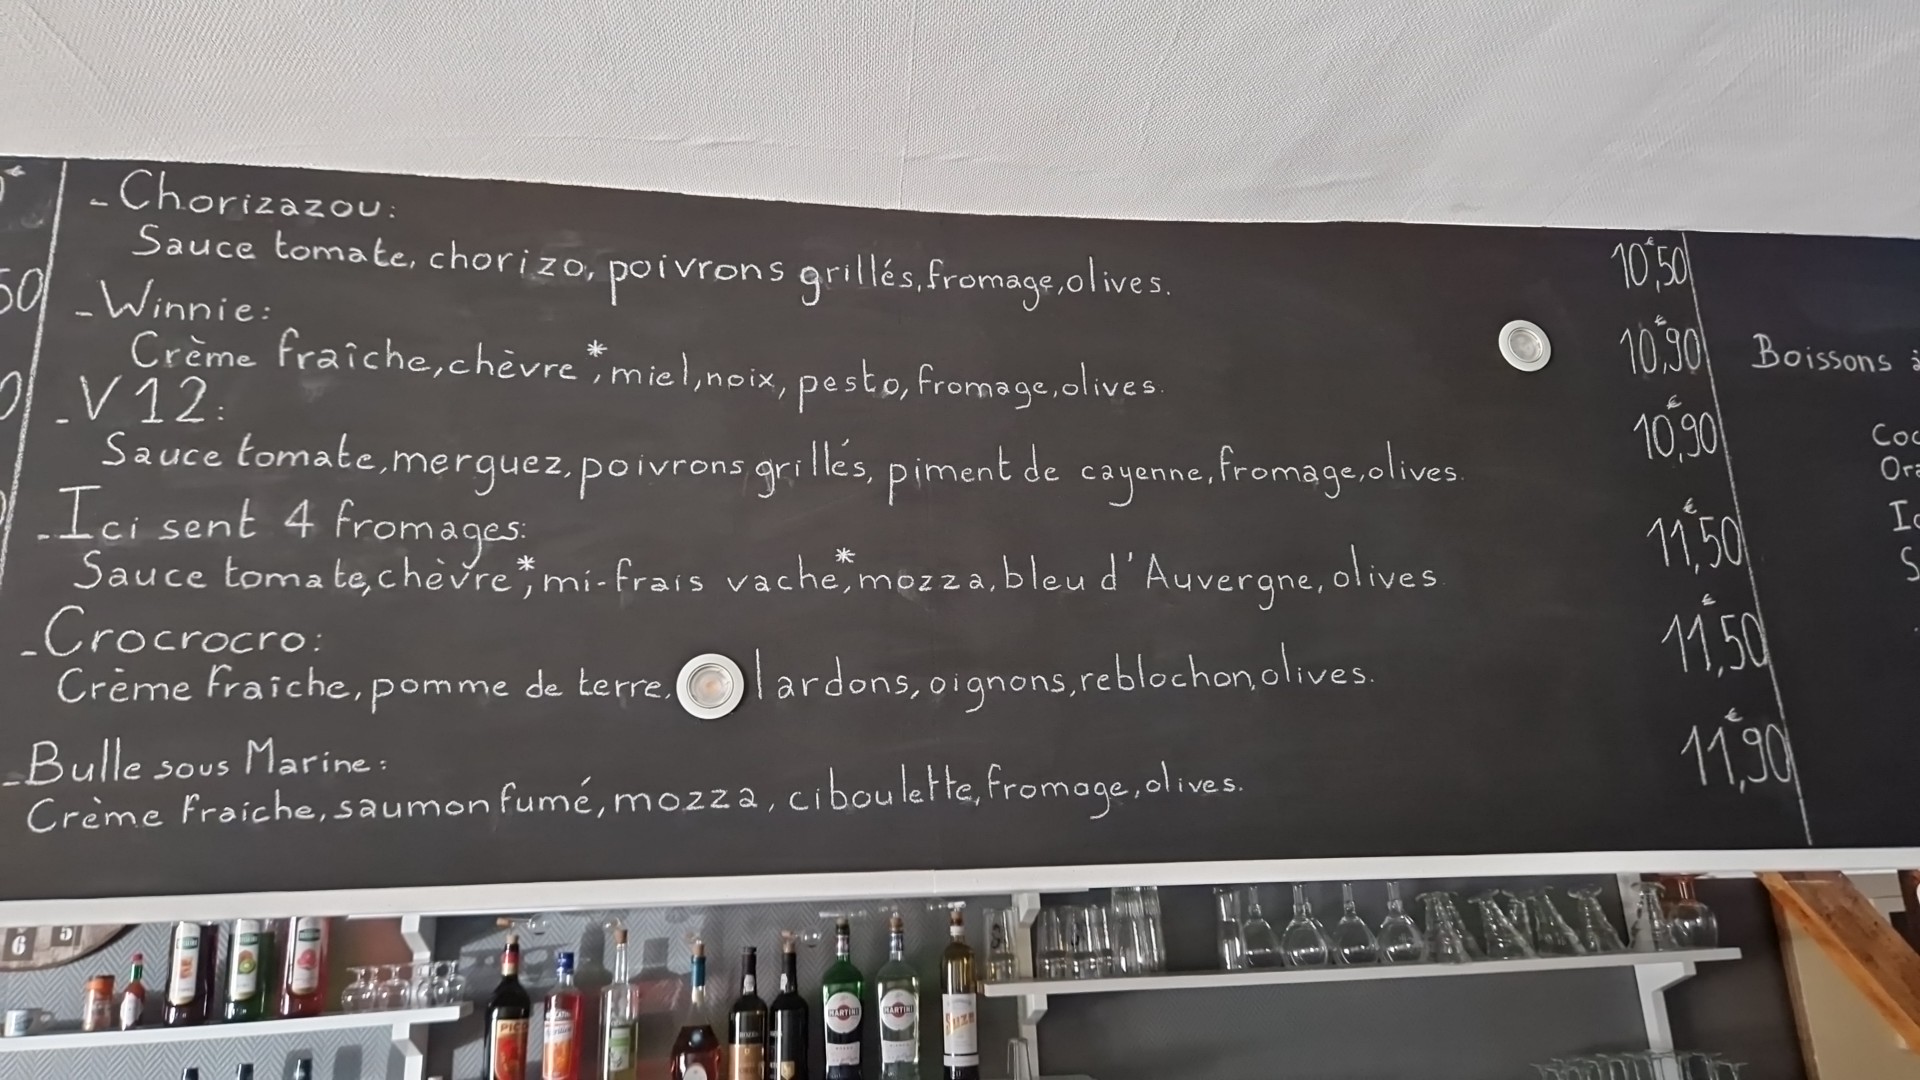 - Chorizazou:
Sauce tomate, chorizo, poivrons grillés, fromage, olives. 10€,50
- Winnie:
Crème fraîche, chèvre*, miel, noix, pesto, fromage, olives. 10€,90
- V12:
Sauce tomate, merguez, poivrons grillés, piment de cayenne, fromage, olives. 10€,90
- Ici sent 4 fromages:
Sauce tomate, chèvre*, mi-frais vache*, mozza, bleu d'Auvergne, olives 11€,50
- Crocrocro:
Crème fraîche, pomme de terre, lardons, oignons, reblochon, olives. 11€,50
- Bulle sous Marine:
Crème fraiche, saumon fumé, mozza, ciboulette, fromage, olives. 11€,90
50
Boissons
6 5
MARTINI
MARTINI
Suze